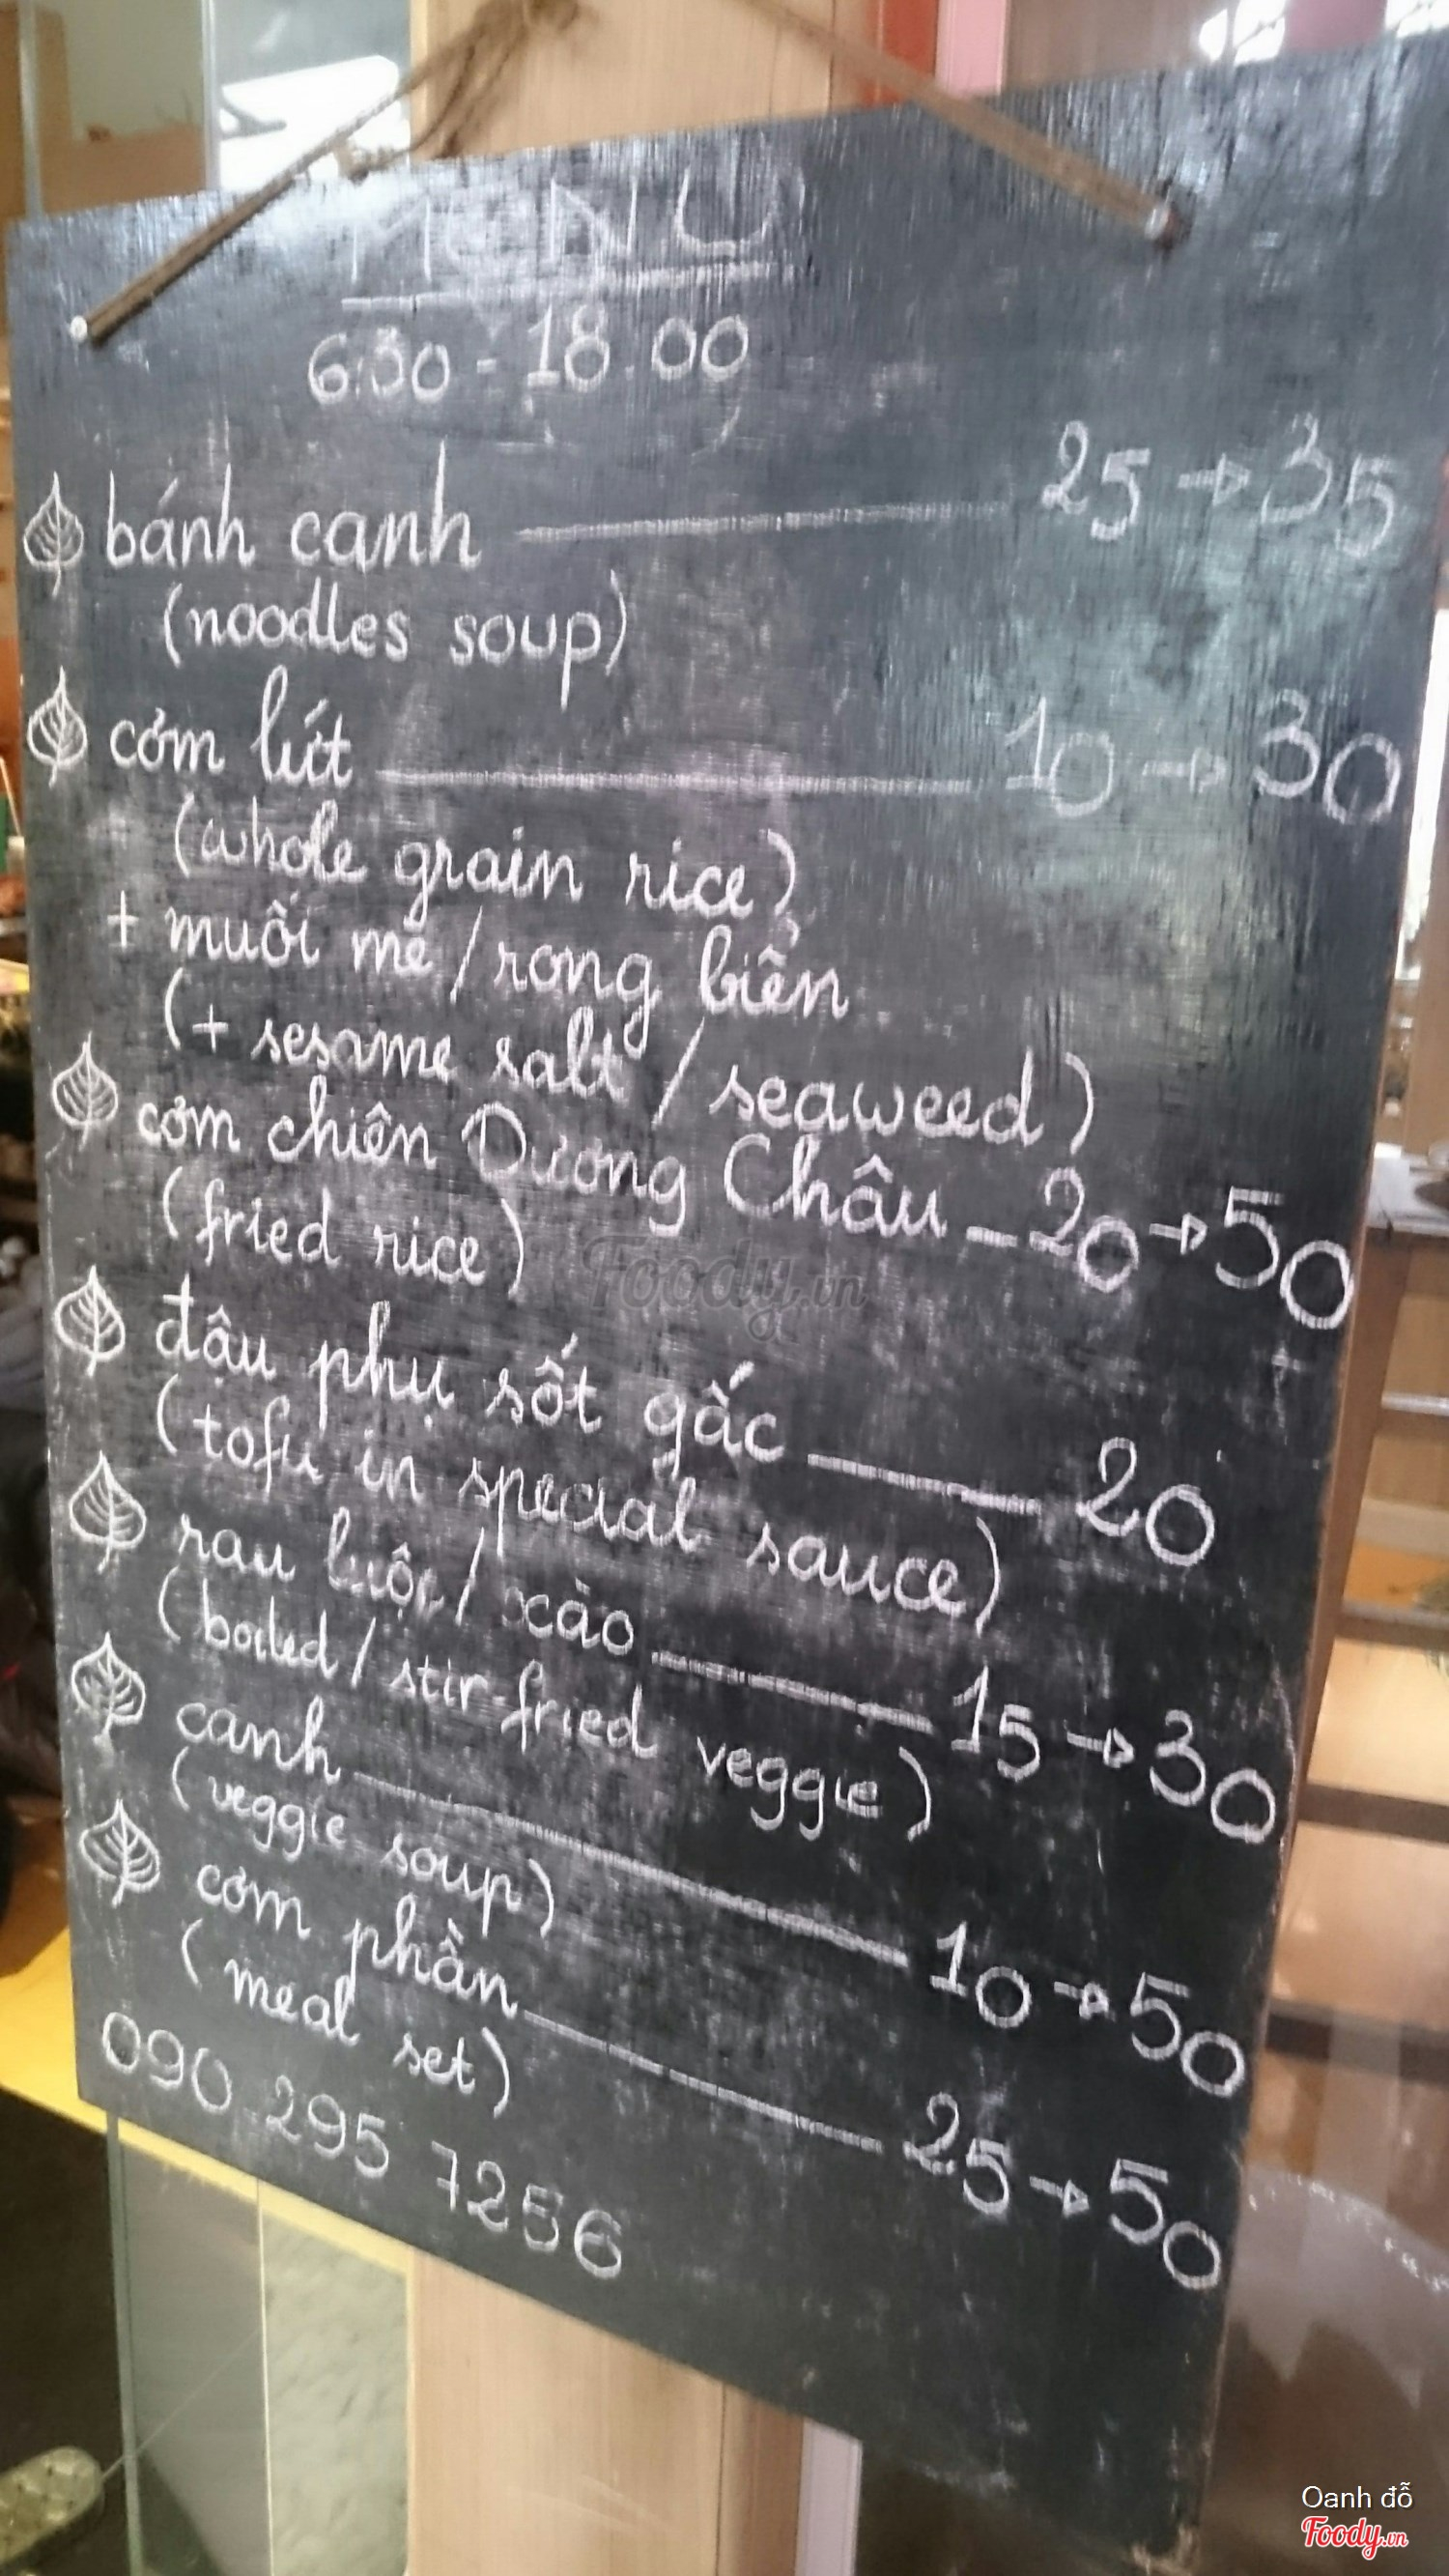 MENU
6:30 - 18.00
bánh canh 25 → 35
(noodles soup)
cơm lứt 10 → 30
(whole grain rice)
+ muối mè / rong biển
(+ sesame salt / seaweed)
cơm chiên Dương Châu 20 → 50
(fried rice)
đậu phụ sốt gấc 20
(tofu in special sauce)
rau luộc / xào 15 → 30
(boiled / stir-fried veggie)
canh 10 → 50
(veggie soup)
cơm phần 25 → 50
(meal set)
090 295 7256
Foody.vn
Oanh đỗ
Foody.vn